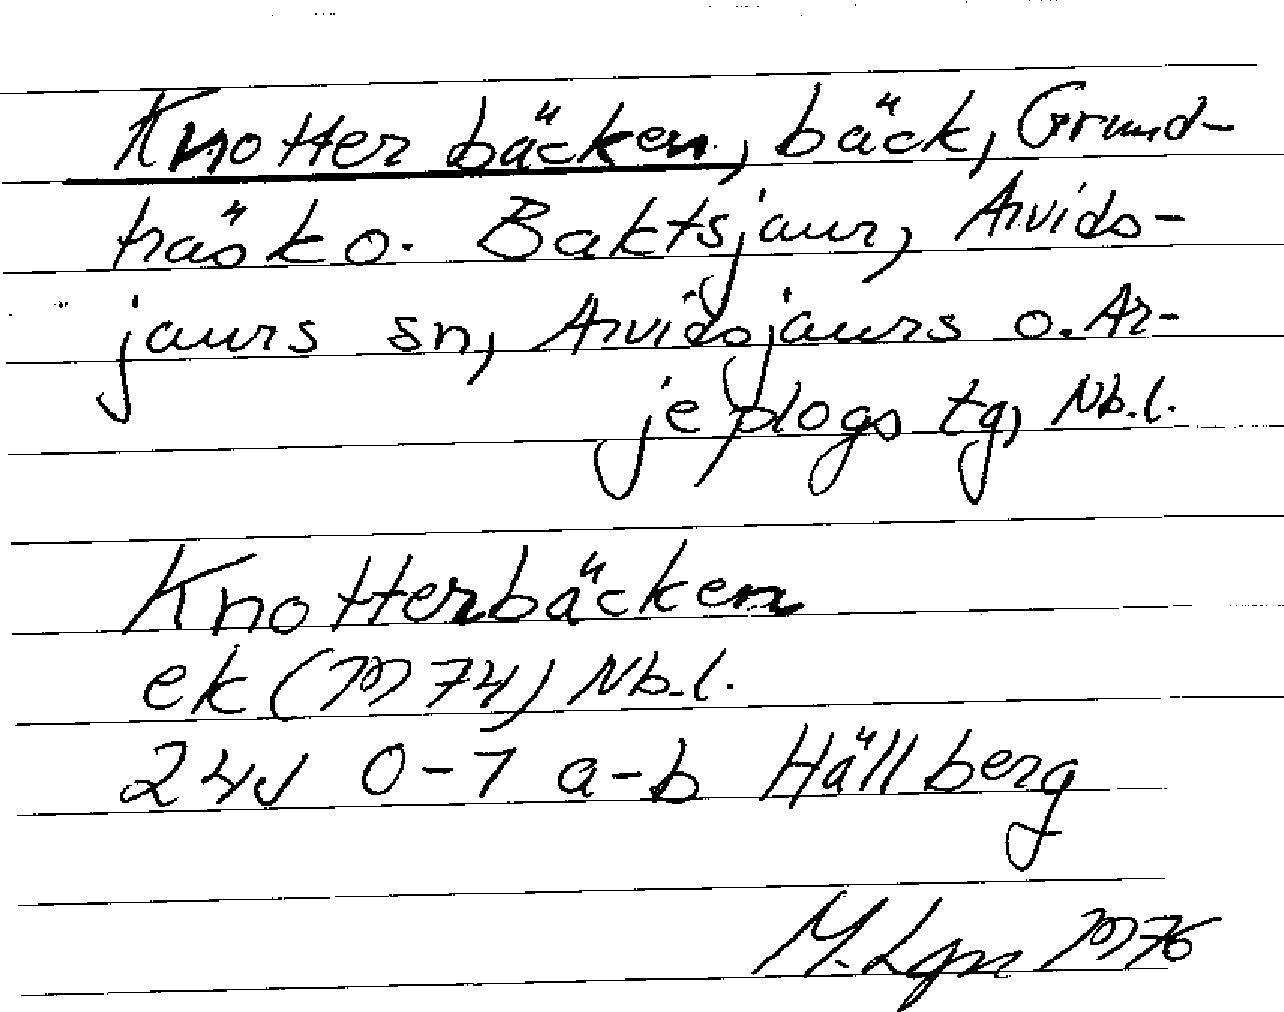 Knotterbäcken, bäck, Grund-
träsk o. Baktsjaur, Arvids-
jaurs sn, Arvidsjaurs o. Ar-
jeplogs tg, Nb.l.
Knotterbäcken
ek (1974) Nb.l.
24J 0-1 a-b Hällberg
M. Lgn 1976